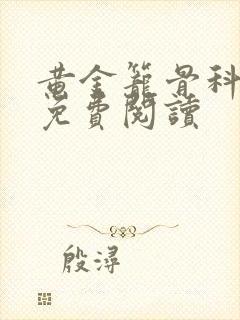 黃金籠骨科
免費閱讀
殷潯